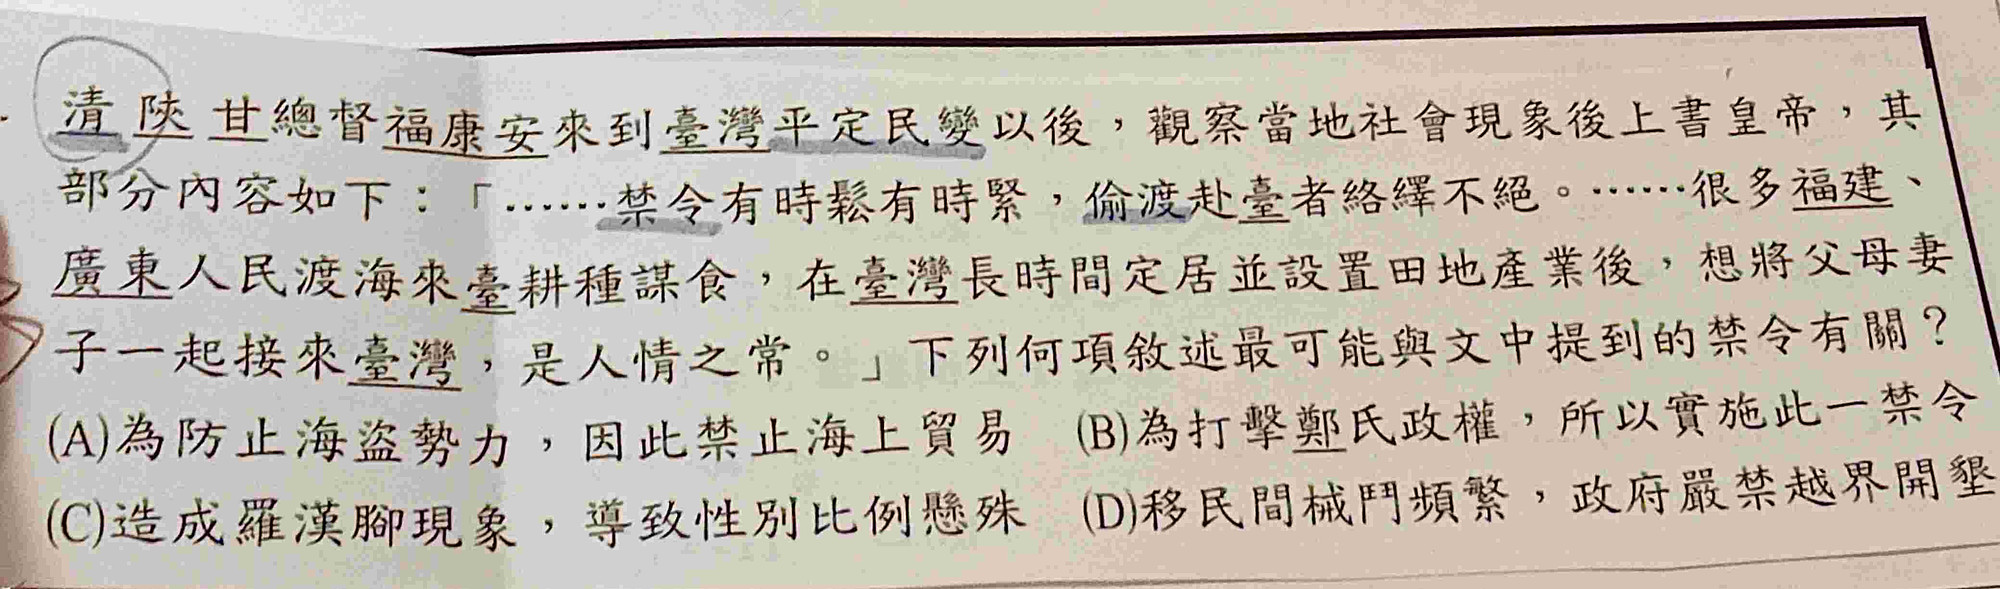 清陝甘總督福康安來到臺灣平定民變以後，觀察當地社會現象後上書皇帝，其
部分內容如下：「……禁令有時鬆有時緊，偷渡赴臺者絡繹不絕。……很多福建、
廣東人民渡海來臺耕種謀食，在臺灣長時間定居並設置田地產業後，想將父母妻
子一起接來臺灣，是人情之常。」下列何項敘述最可能與文中提到的禁令有關？
(A)為防止海盜勢力，因此禁止海上貿易　(B)為打擊鄭氏政權，所以實施此一禁令
(C)造成羅漢腳現象，導致性別比例懸殊　(D)移民間械鬥頻繁，政府嚴禁越界開墾